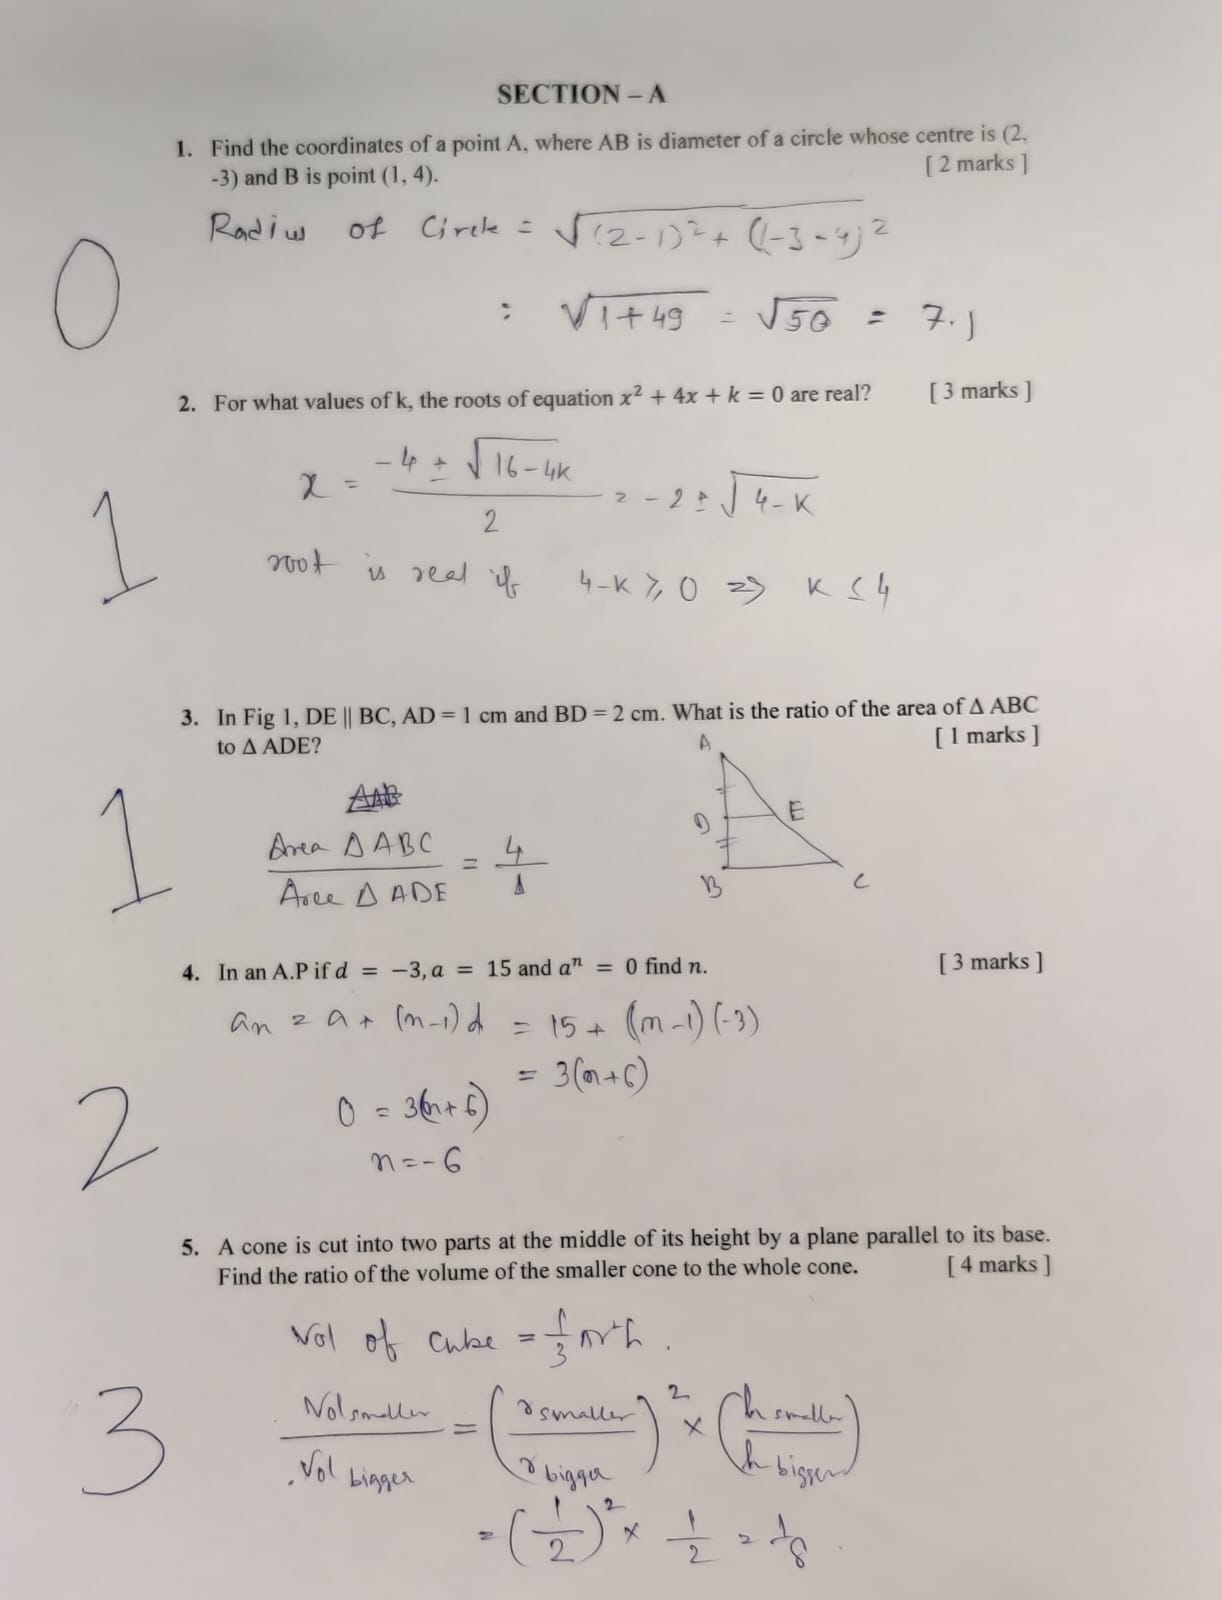 SECTION – A
1. Find the coordinates of a point A, where AB is diameter of a circle whose centre is (2,
-3) and B is point (1, 4). [ 2 marks ]
Radius of Circle = √(2-1)² + (-3-4)²
0
: √1+49 = √50 = 7.1
2. For what values of k, the roots of equation x² + 4x + k = 0 are real? [ 3 marks ]
x = (-4 ± √16-4k)/2 = -2 ± √4-K
1
root is real if 4-K ≥ 0 => K ≤ 4
3. In Fig 1, DE || BC, AD = 1 cm and BD = 2 cm. What is the ratio of the area of Δ ABC
to Δ ADE? [ 1 marks ]
A
D E
B C
1
Area Δ ABC / Area Δ ADE = 4/1
4. In an A.P if d = −3, a = 15 and aⁿ = 0 find n. [ 3 marks ]
an = a + (n-1)d = 15 + (n-1)(-3)
= 3(n+6)
2
0 = 3(n+6)
n = -6
5. A cone is cut into two parts at the middle of its height by a plane parallel to its base.
Find the ratio of the volume of the smaller cone to the whole cone. [ 4 marks ]
Vol of Cube = 1/3 πr²h.
3
Vol smaller / Vol bigger = (r smaller / r bigger)² × (h smaller / h bigger)
= (1/2)² × 1/2 = 1/8